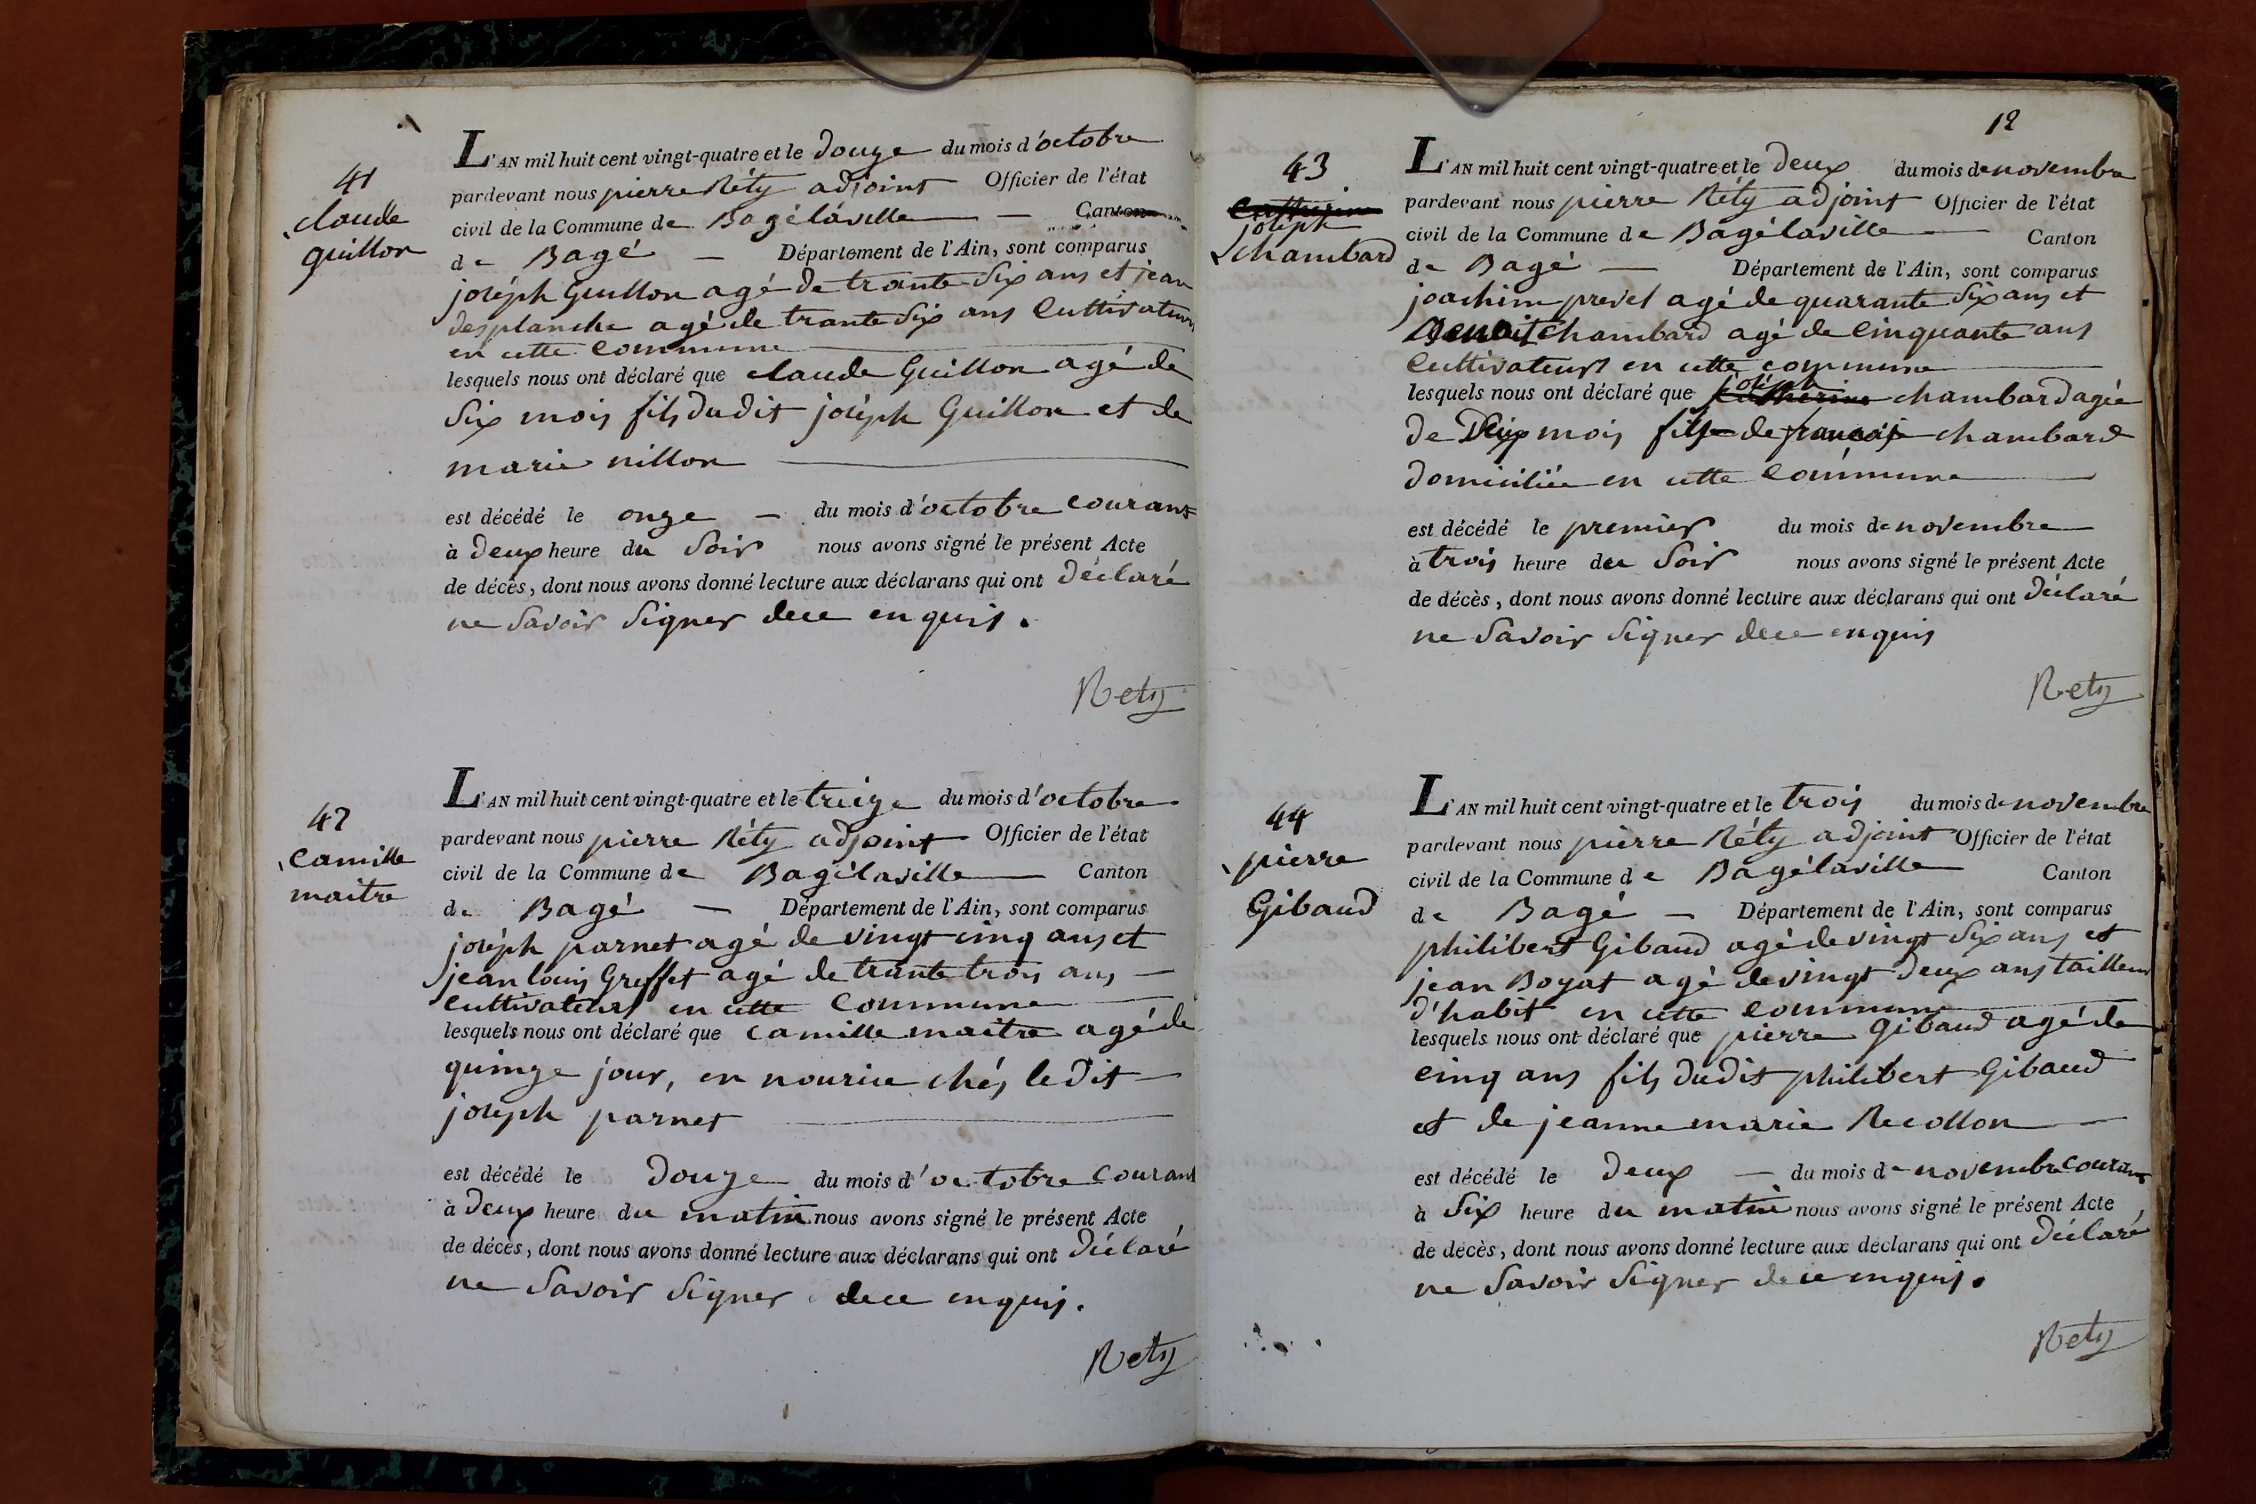 41
claude
guillon
L'AN mil huit cent vingt-quatre et le douze du mois d'octobre
pardevant nous pierre Réty adjoint Officier de l'état
civil de la Commune de Bagélaville Canton
de Bagé Département de l'Ain, sont comparus
joséph Guillon agé de trante Six ans et jean
desplanche agé de trante Six ans Cultivateurs
en cette Commune
lesquels nous ont déclaré que claude Guillon agé de
Six mois fils dudit joséph Guillon et de
marie nillon
est décédé le onze du mois d'octobre courant
à deux heure du Soir nous avons signé le présent Acte
de décès, dont nous avons donné lecture aux déclarans qui ont déclaré
ne Savoir Signer de ce enquis.
Rety
42
Camille
maitre
L'AN mil huit cent vingt-quatre et le treize du mois d'octobre
pardevant nous pierre Réty adjoint Officier de l'état
civil de la Commune de Bagélaville Canton
de Bagé Département de l'Ain, sont comparus
joséph parnet agé de vingt cinq ans et
jean louis Greffet agé de trante trois ans
Cultivateurs en cette Commune
lesquels nous ont déclaré que Camille maitre agé de
quinze jour, en nourice chés le dit
joseph parnet
est décédé le douze du mois d'octobre Courant
à deux heure du matin nous avons signé le présent Acte
de décès, dont nous avons donné lecture aux déclarans qui ont déclaré
ne Savoir Signer de ce enquis.
Rety
12
43
Catherine
joseph
chambard
L'AN mil huit cent vingt-quatre et le deux du mois de novembre
pardevant nous pierre Réty adjoint Officier de l'état
civil de la Commune de Bagélaville Canton
de Bagé Département de l'Ain, sont comparus
joachim prevel agé de quarante Six ans et
Benoit Chambard agé de Cinquante ans
Cultivateurs en cette commune
joséph
lesquels nous ont déclaré que Catherine chambard agée
de Deux mois fils de francois chambard
domiciliée en cette Commune
est décédé le premier du mois de novembre
à trois heure du Soir nous avons signé le présent Acte
de décès, dont nous avons donné lecture aux déclarans qui ont déclaré
ne Savoir Signer de ce enquis
Rety
44
pierre
Gibaud
L'AN mil huit cent vingt-quatre et le trois du mois de novembre
pardevant nous pierre Réty adjoint Officier de l'état
civil de la Commune de Bagélaville Canton
de Bagé Département de l'Ain, sont comparus
philibert Gibaud agé de vingt Six ans et
jean Boyat agé de vingt deux ans tailleur
d'habit en cette Commune
lesquels nous ont déclaré que pierre Gibaud agé de
cinq ans fils dudit philibert Gibaud
et de jeanne marie Recollon
est décédé le deux du mois de novembre courant
à Six heure du matin nous avons signé le présent Acte
de decès, dont nous avons donné lecture aux déclarans qui ont déclaré
ne Savoir Signer de ce enquis.
Rety